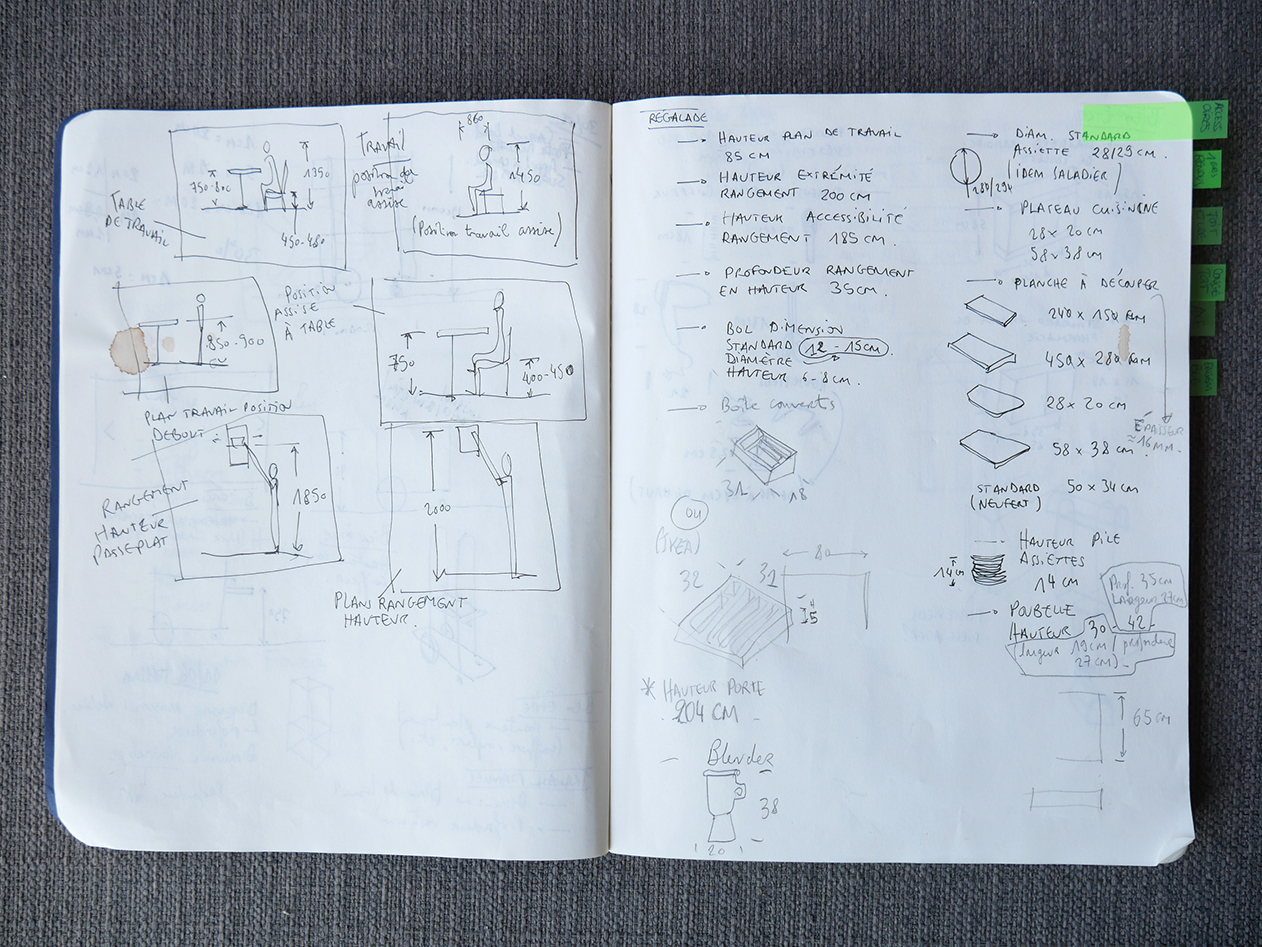 750-800
1350
450-480
TABLE
DE TRAVAIL
TRAVAIL
position de
travail
assise
860
1450
(Position travail assise)
850-900
PLAN TRAVAIL POSITION
DEBOUT
POSITION
ASSISE
À TABLE
750
400-450
RANGEMENT
HAUTEUR
PASSE PLAT
1850
2000
PLANS RANGEMENT
HAUTEUR.
REGALADE
HAUTEUR PLAN DE TRAVAIL
85 CM
HAUTEUR EXTRÉMITÉ
RANGEMENT 200 CM
HAUTEUR ACCESSIBILITÉ
RANGEMENT 185 CM.
PROFONDEUR RANGEMENT
EN HAUTEUR 35 CM.
BOL DIMENSION
STANDARD 12-15CM
DIAMÈTRE
HAUTEUR 6-8 CM.
Boîte couverts
31
18
OU
(IKEA)
32
31
80
5
* HAUTEUR PORTE
204 CM
Blender
38
20
DIAM. STANDARD
ASSIETTE 28/29 CM.
(IDEM SALADIER)
280/294
PLATEAU CUISININE
28 x 20 cm
58 x 38 cm
PLANCHE À DÉCOUPER
240 x 150 mm
450 x 280 mm
28 x 20 cm
58 x 38 cm
ÉPAISSEUR
≈16 MM.
STANDARD 50 x 34 cm
(NEUFERT)
HAUTEUR PILE
ASSIETTES
14 cm
14 cm
POUBELLE
HAUTEUR 30
(largeur 19 cm / profondeur
27 cm)
Prof. 35cm
Largeur 27cm
42
65 cm